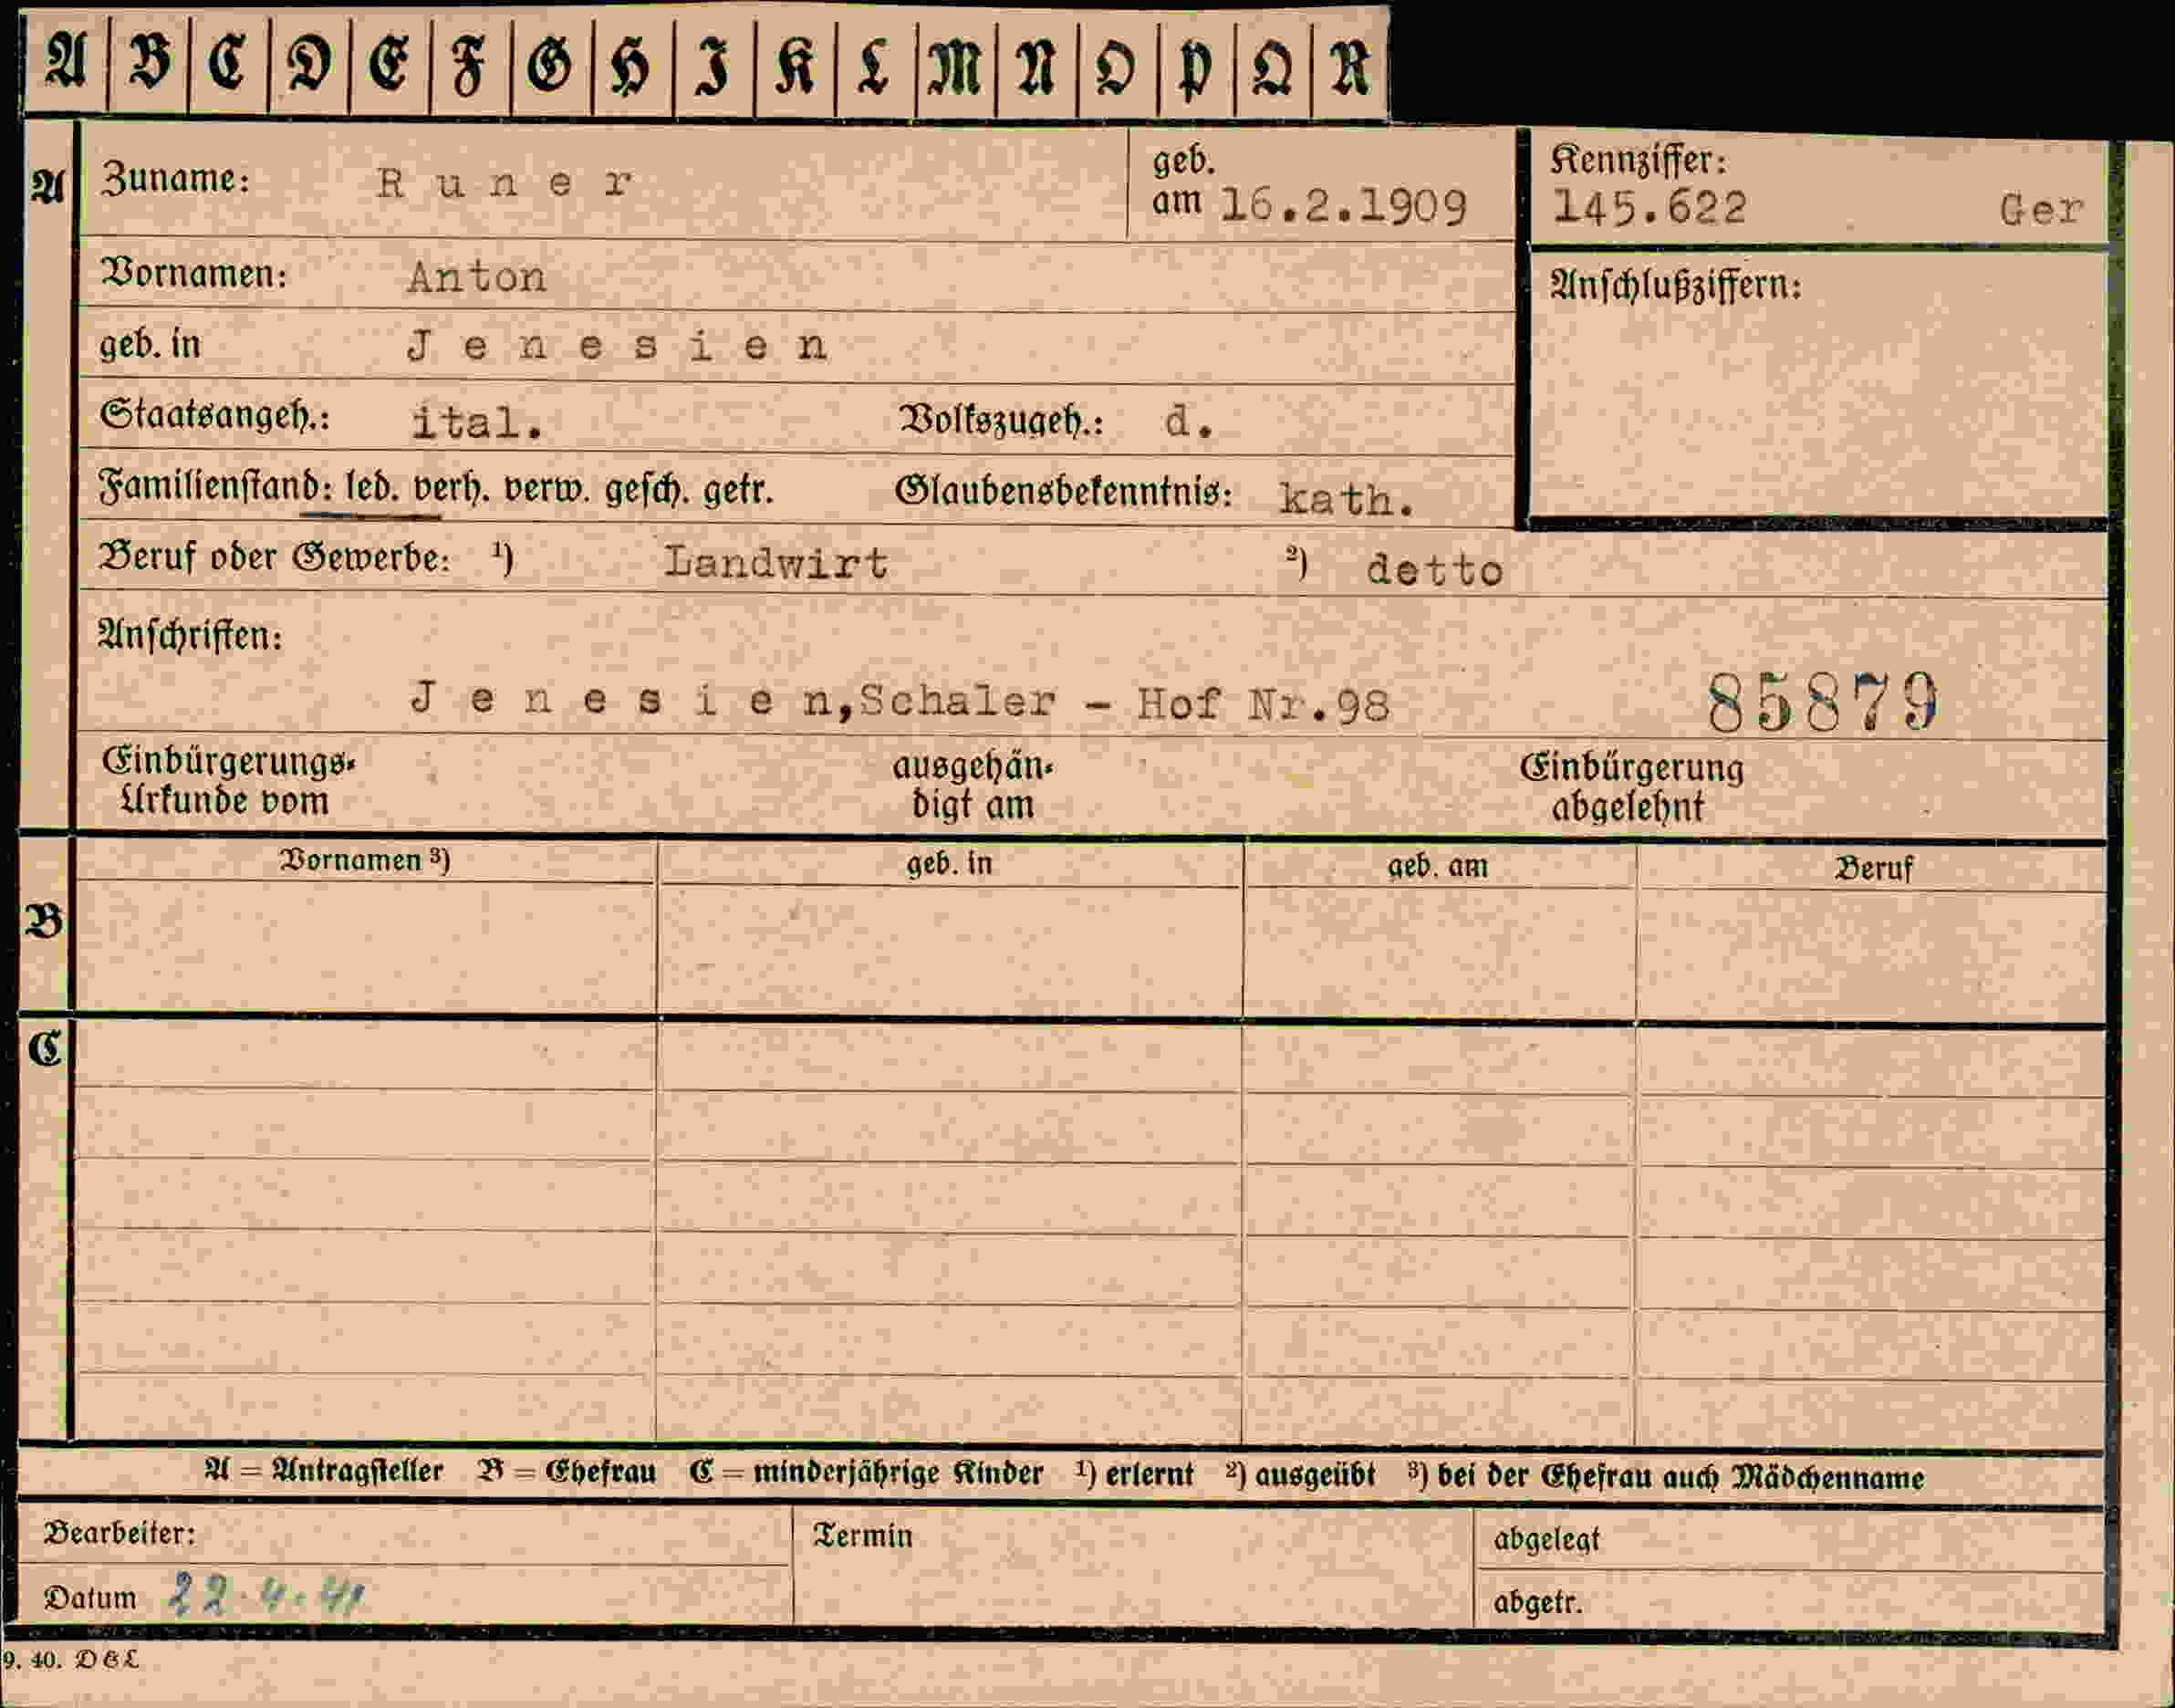 A B C D E F G H I K L M N O P Q R
A Zuname: Runer geb. am 16.2.1909 Kennziffer: 145.622 Ger
Vornamen: Anton Anschlußziffern:
geb. in Jenesien
Staatsangeh.: ital. Volkszugeh.: d.
Familienstand: led. verh. verw. gesch. getr. Glaubensbekenntnis: kath.
Beruf oder Gewerbe: ¹) Landwirt ²) detto
Anschriften:
Jenesien, Schaler - Hof Nr.98 85879
Einbürgerungs- ausgehän- Einbürgerung
Urkunde vom digt am abgelehnt
Vornamen ³) geb. in geb. am Beruf
B
C
A = Antragsteller B = Ehefrau C = minderjährige Kinder ¹) erlernt ²) ausgeübt ³) bei der Ehefrau auch Mädchenname
Bearbeiter: Termin abgelegt
Datum 22.4.41 abgetr.
9. 40. DGL